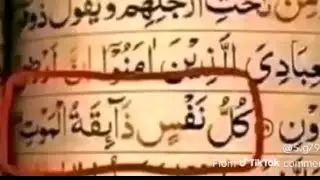 مِنْ تَحْتِ اَرْجُلِهِمْ وَيَقُوْلُ ذُوْقُوْا
عِبَادِيَ الَّذِيْنَ اٰمَنُوْٓا اِنَّ اَرْضِيْ
وْنِ كُلُّ نَفْسٍ ذَآئِقَةُ الْمَوْتِ
From TikTok comme